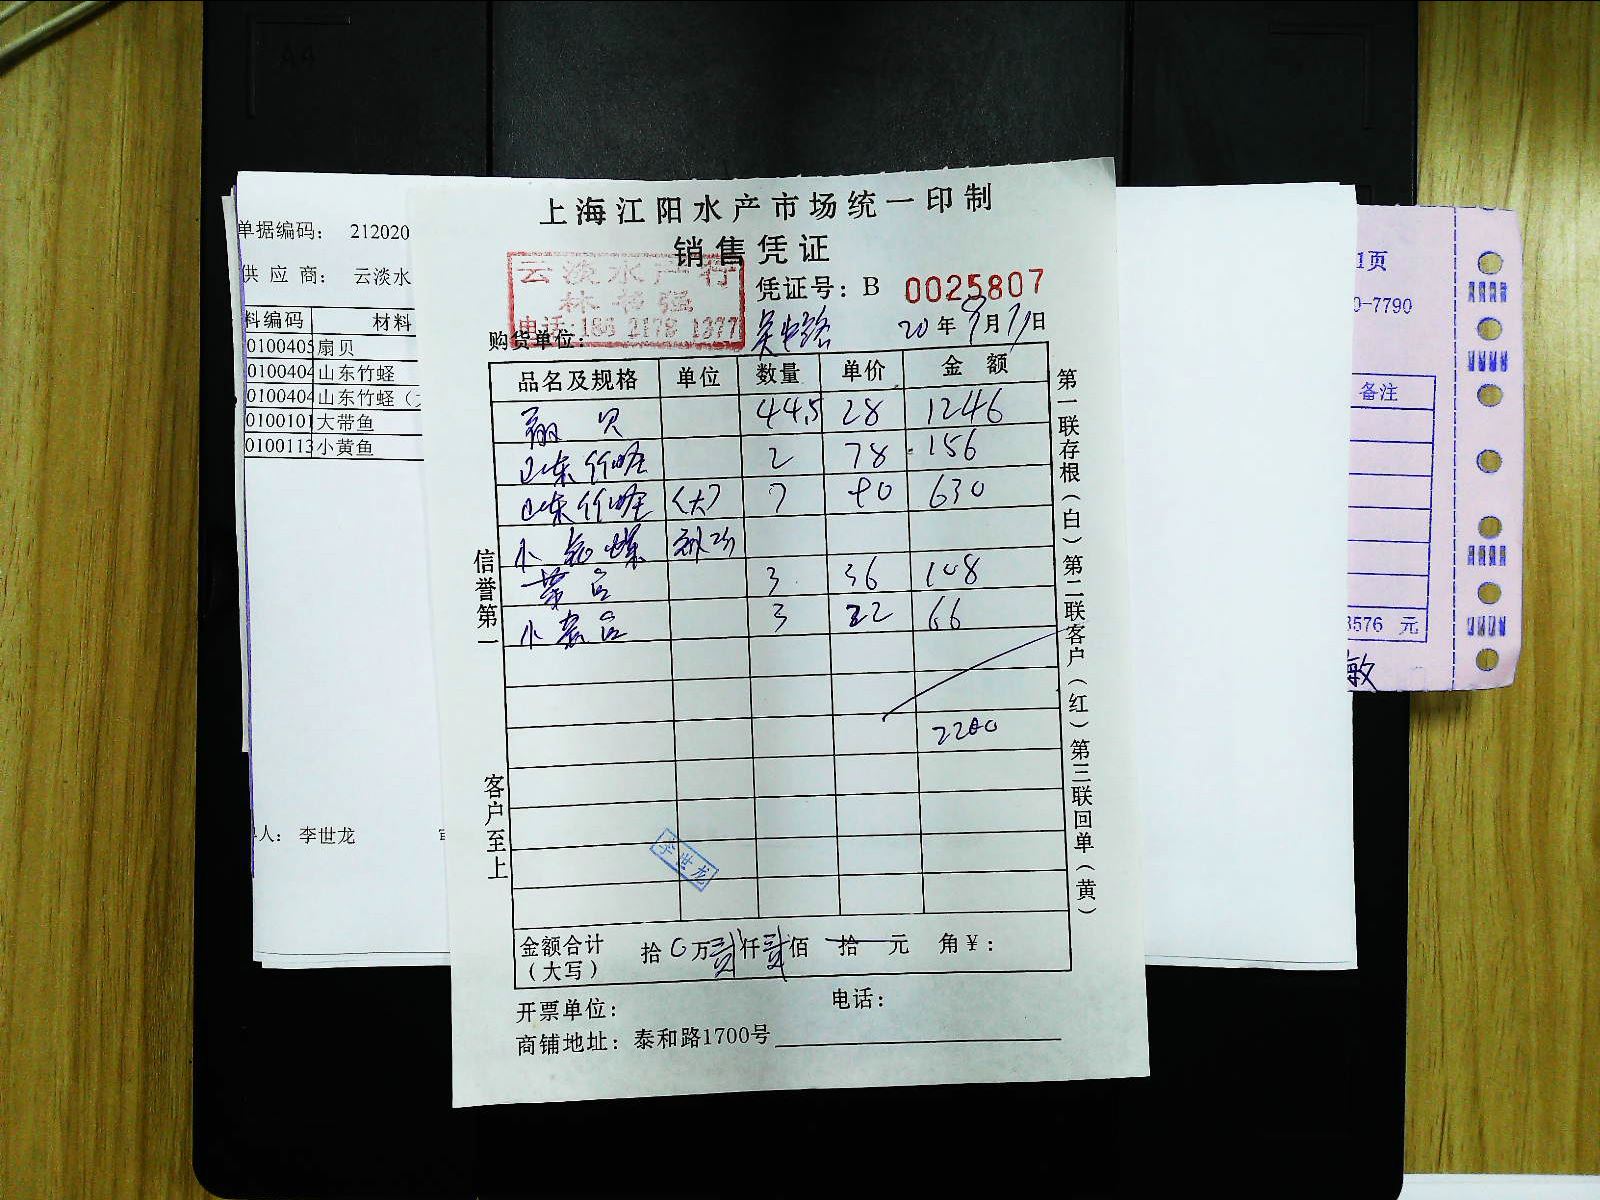 上海江阳水产市场统一印制
销售凭证
云淡水产行
电话:186 2178 1377
凭证号：B 0025807
购货单位： 吴中路 20年9月11日
品名及规格 单位 数量 单价 金额
扇贝 44.5 28 1246
山东竹蛏 2 78 156
山东竹蛏 (大) 7 90 630
3 36 108
小 3 22 66
2200
李世龙
金额合计（大写） 拾0万贰仟贰佰拾元角¥：
开票单位： 电话：
商铺地址：泰和路1700号
信誉第一
客户至上
第一联存根（白）第二联客户（红）第三联回单（黄）
单据编码： 212020
供应商： 云淡水
料编码 材料
0100405 扇贝
0100404 山东竹蛏
0100404 山东竹蛏（
0100101 大带鱼
0100113 小黄鱼
人： 李世龙
1页
0-7790
备注
3576 元
敏